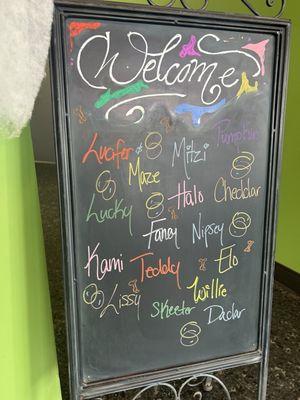 Welcome
Pumpkin
Lucifer & Mitzi
Maze
Halo Cheddar
Lucky
Fancy Nipsey
Kami Teddy Elo
Lissy Willie
Skeeter Dadar